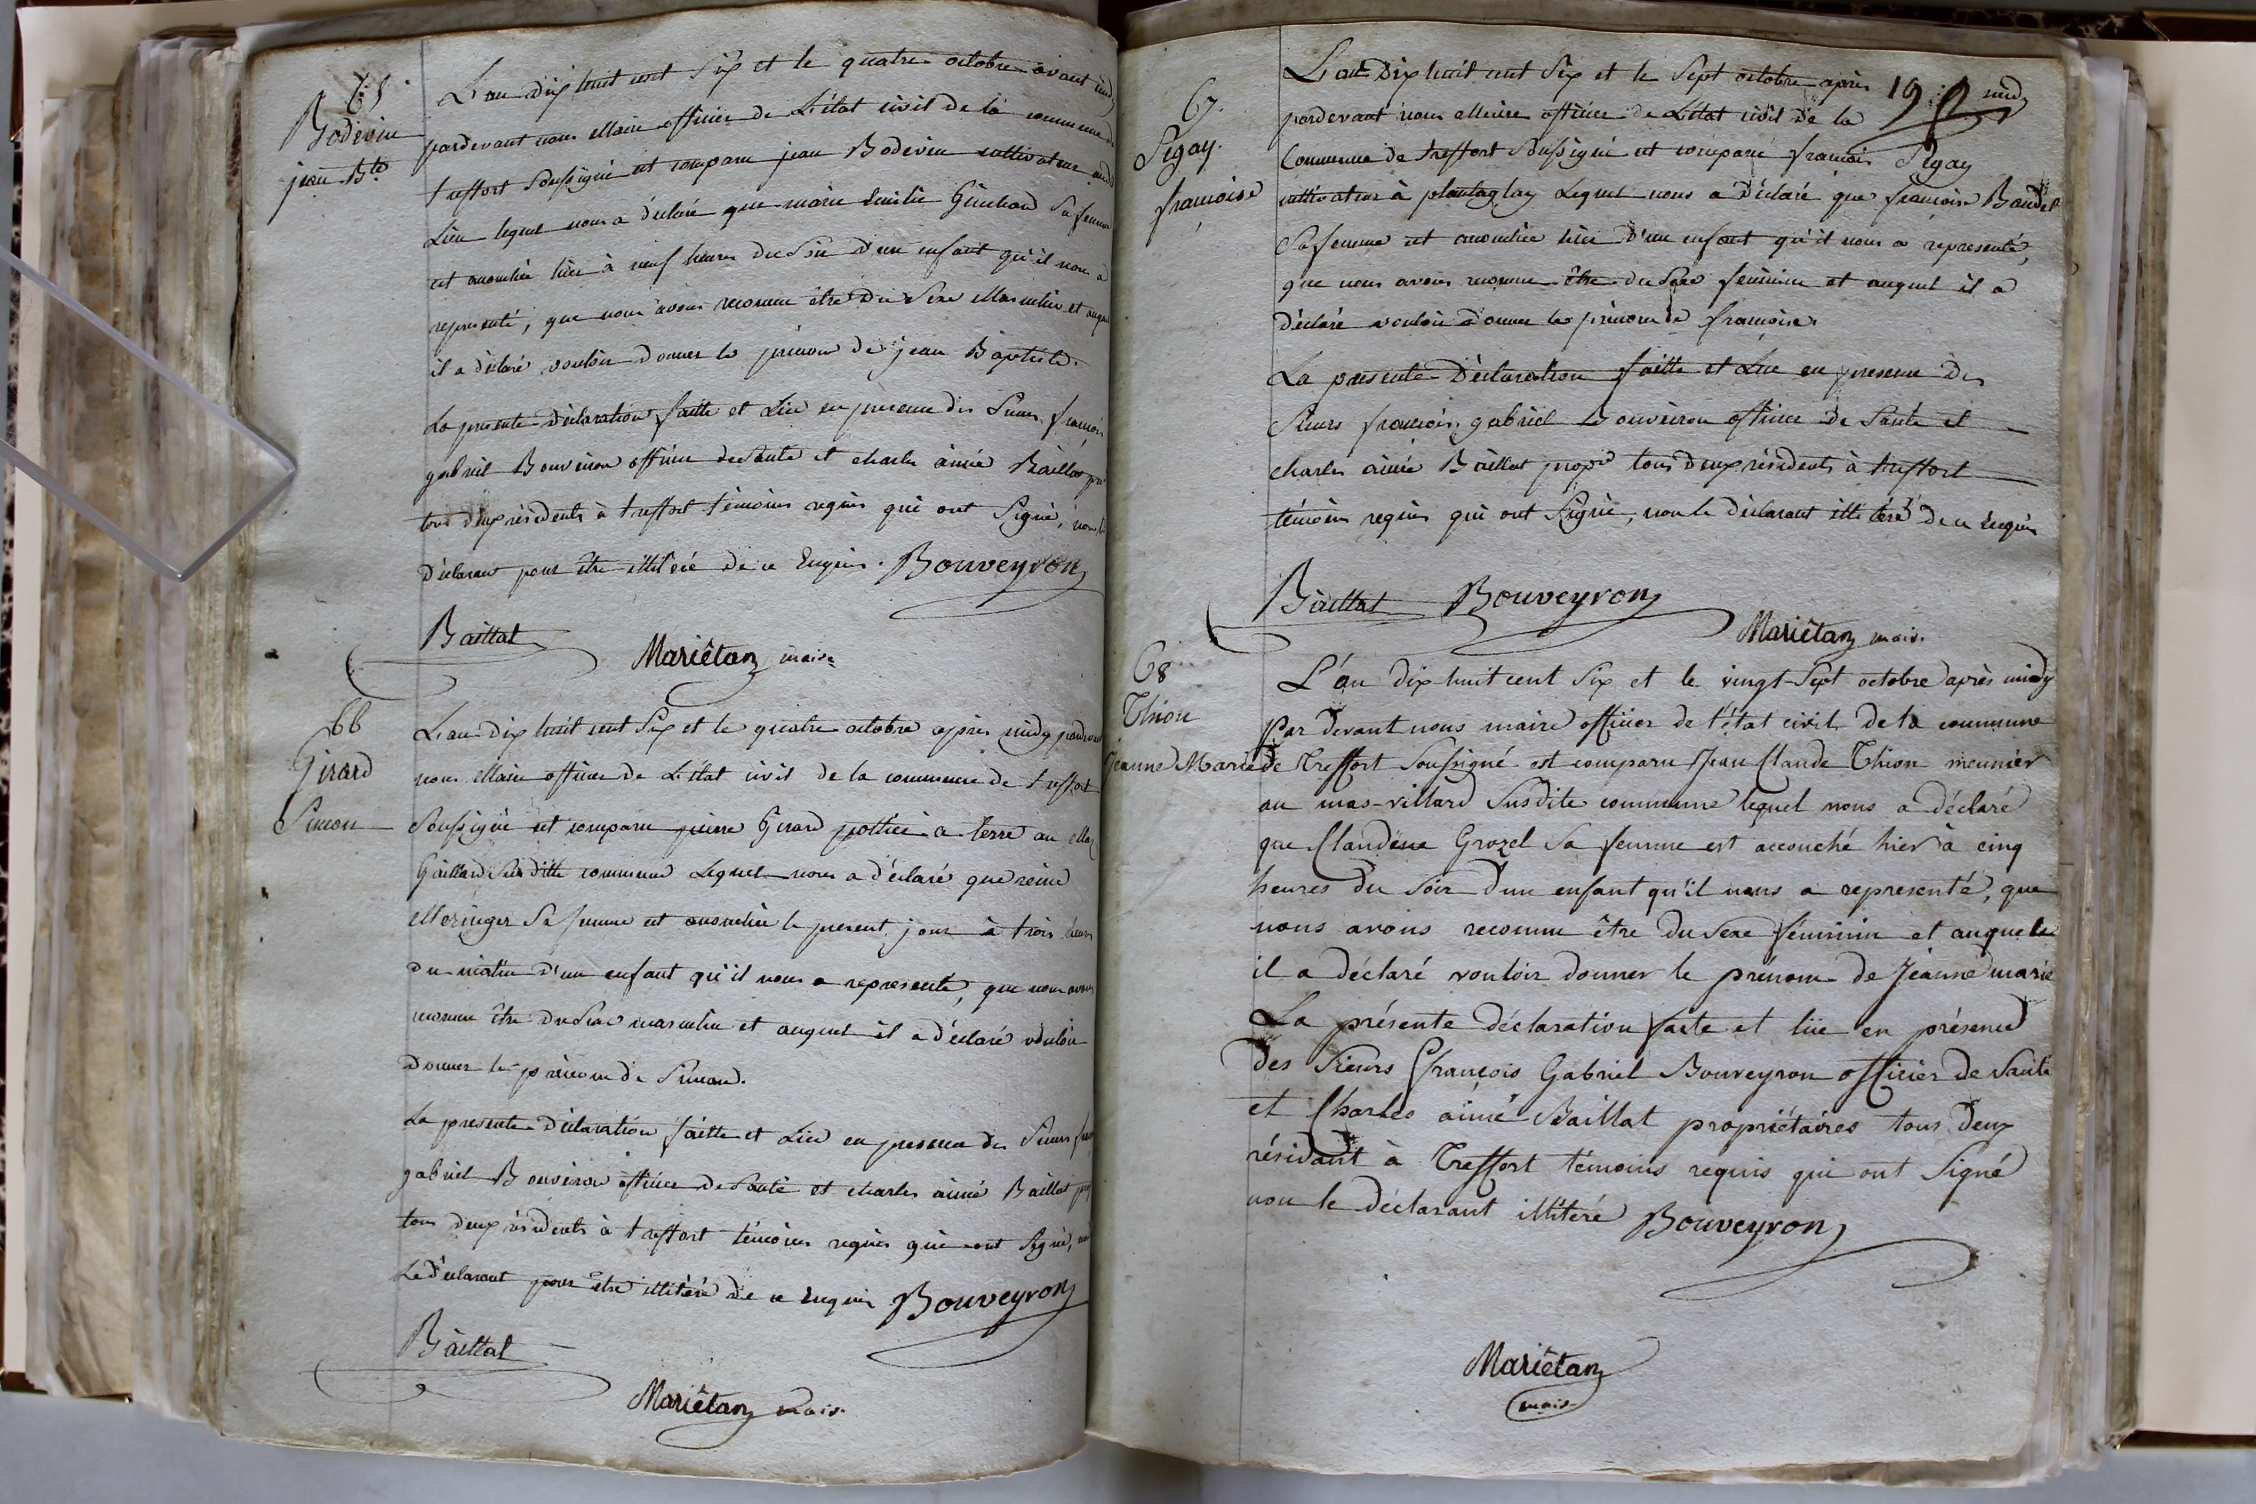 65.
Bodevin
jean Bte
L'an dix huit cent six et le quatre octobre avant midy
pardevant nous Maire officier de L'état civil de la commune de
treffort soussigné est comparu jean Bodevin cultivateur audit
Lieu lequel nous a déclaré que marie Emilie sa femme
est accouchée hier à neuf heures du soir d'un enfant qu'il nous a
representé, que nous avons reconnu être du sexe Masculin et auquel
il a déclaré vouloir donner le prénom de jean Baptiste.
La presente déclaration faitte et Lüe en presence des sieurs francois
gabriel Bouveiron officier de santé et charles aimé Baillat pro
tous deux résidents à treffort témoins requis qui ont signé, non le
déclarant pour être illitéré de ce Enquis. Bouveyron
Baillat
Mariêtan maire
66
Girard
Simon
L'an dix huit cent six et le quatre octobre après midy pardevant
nous Maire officier de L'état civil de la commune de treffort
soussigné est comparu pierre Girard pottier a terre au Mas
Gaillard susditte commune Lequel nous a déclaré que reine
Moringer sa femme est accouchée le present jour à trois heures
du matin d'un enfant qu'il nous a representé, que nous avons
reconnu être du sexe masculin et auquel il a déclaré vouloir
donner le prénom de Simon.
La presente déclaration faitte et Lüe en presence des sieurs
gabriel Bouveiron officier de santé et charles aimé Baillat pro
tous deux résidents à treffort témoins requis qui ont signé, non
Le déclarant pour être illitéré de ce Enquis Bouveyron
Baillat
Mariêtan maire
67.
Pegay.
francoise
L'an Dix huit cent six et le sept octobre après 19 midy
pardevant nous Maire officier de L'état civil de la
Commune de treffort soussigné est comparu francois Pegay
cultivateur à plantaglay Lequel nous a déclaré que francoise Baudet
sa femme est accouchée hier d'un enfant qu'il nous a representé,
que nous avons reconnu être du sexe feminin et auquel il a
déclaré vouloir donner le prénom de francoise.
La presente Déclaration faitte et Lüe en presence des
sieurs francois gabriel Bouveiron officier de santé et
charles aimé Baillat propre tous deux résidents à treffort
témoins requis qui ont signé, non le déclarant illitéré de ce Enquis
Baillat Bouveyron
Mariêtan maire
68
Thion
Jeanne Marie
L'an dix huit cent six et le vingt-sept octobre après midy
par devant nous maire officier de l'état civil de la commune
de Treffort soussigné est comparu Jean Claude Thion meunier
au mas-villard susdite commune lequel nous a déclaré
que Claudine Grozel sa femme est accouché hier à cinq
heures du soir d'un enfant qu'il nous a representé, que
nous avons reconnu être du sexe féminin et auquel
il a déclaré vouloir donner le prénom de Jeanne marie
La présente déclaration faite et lüe en présence
des sieurs François Gabriel Bouveyron officier de santé
et Charles aimé Baillat propriétaires tous deux
résidant à Treffort témoins requis qui ont signé
non le déclarant illitéré Bouveyron
Mariêtan
maire